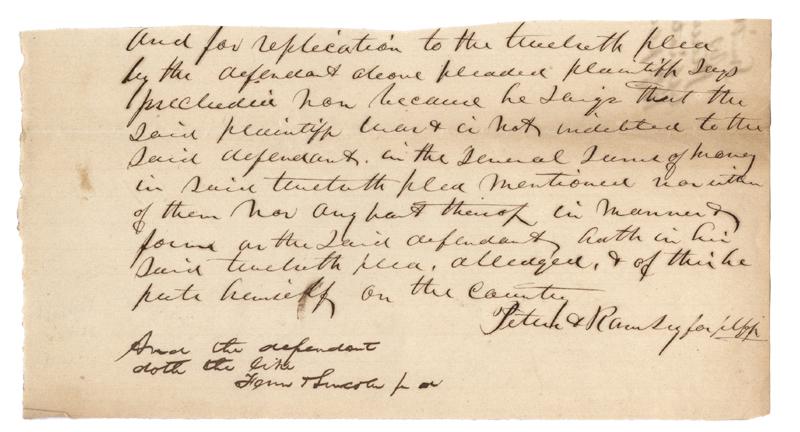 And for replication to the twelveth plea
by the defendant above pleaded plaintiff says
precludi non because he says that the
said plaintiff was & is not indebted to the
said defendant. in the several sums of money
in said twelveth plea mentioned nor either
of them nor any part thereof in manner &
form as the said defendant hath in his
said twelveth plea. alledged, & of this he
puts himself on the country
& Ramsey for plff
And the defendant
doth the like
& Lincoln p d